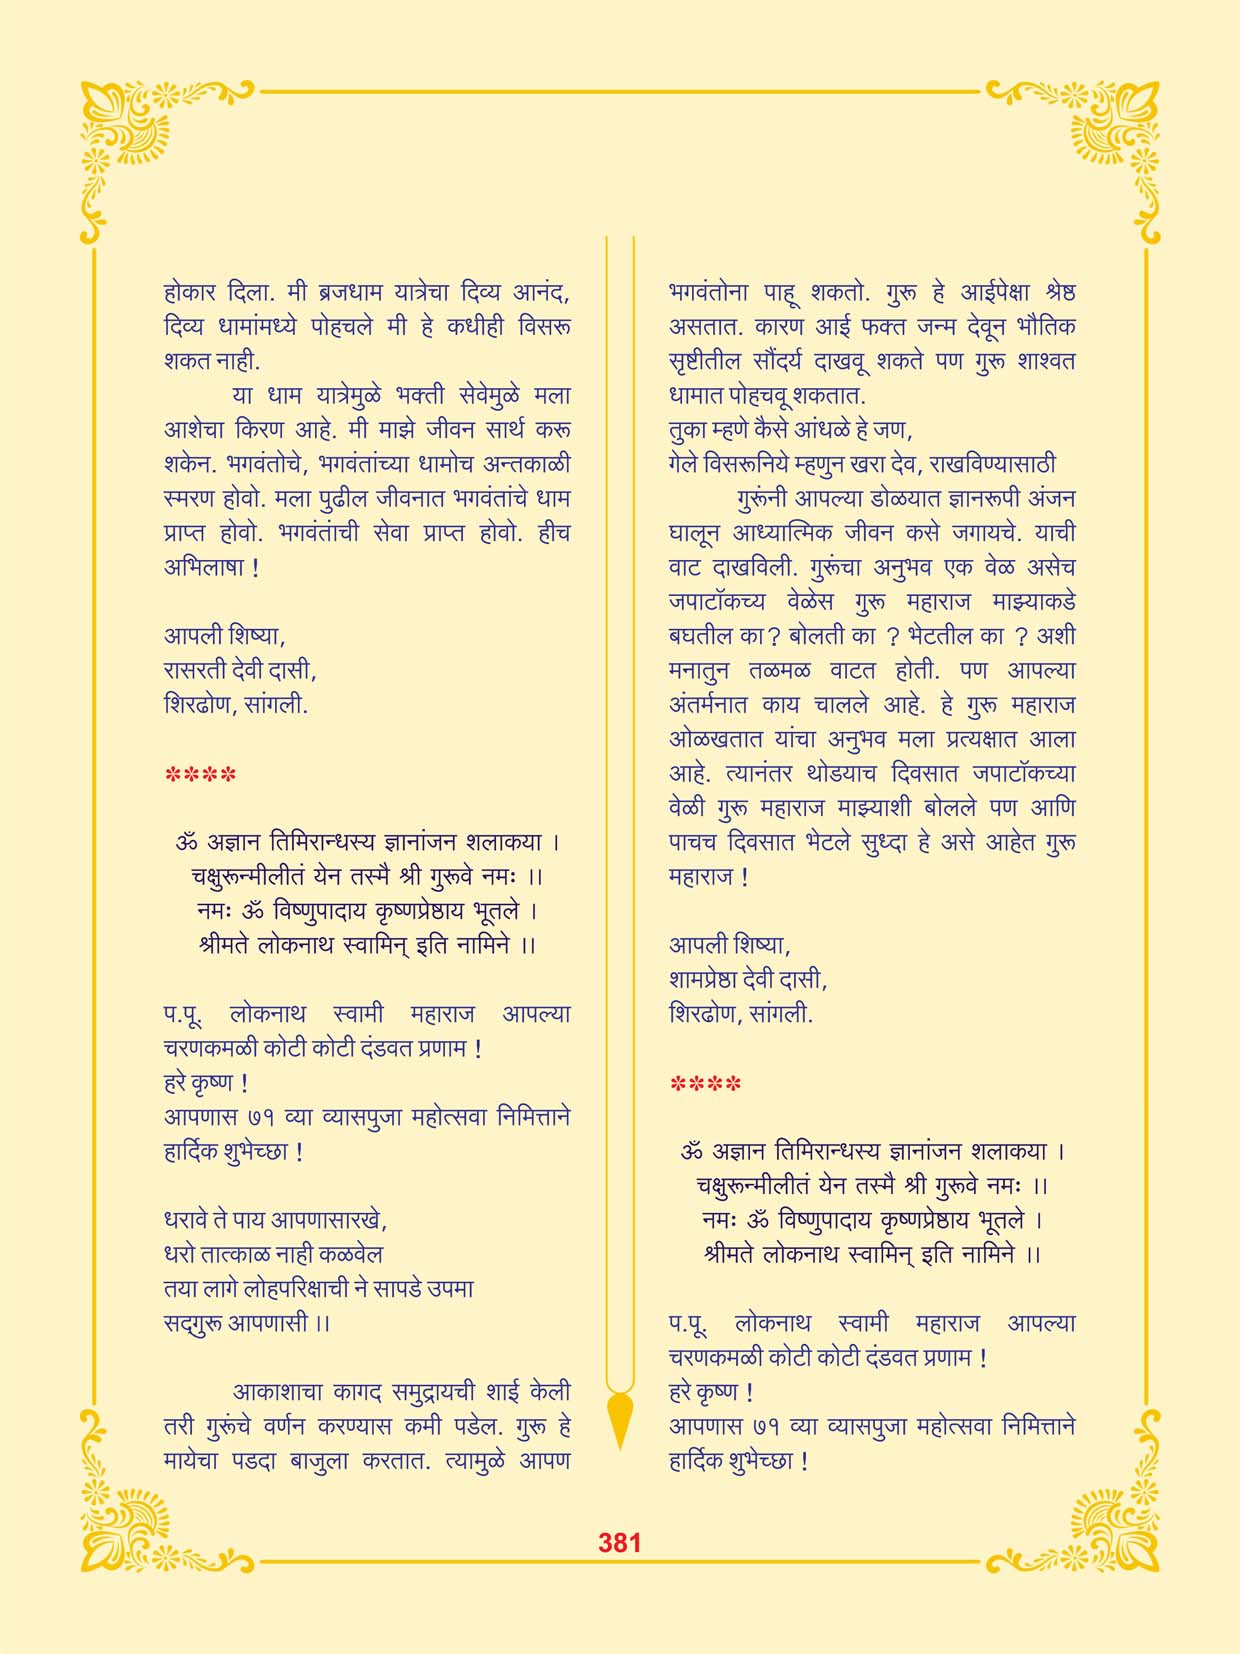 होकार दिला. मी ब्रजधाम यात्रेचा दिव्य आनंद,
दिव्य धामांमध्ये पोहचले मी हे कधीही विसरू
शकत नाही.
या धाम यात्रेमुळे भक्ती सेवेमुळे मला
आशेचा किरण आहे. मी माझे जीवन सार्थ करू
शकेन. भगवंतोचे, भगवंतांच्या धामोच अन्तकाळी
स्मरण होवो. मला पुढील जीवनात भगवंतांचे धाम
प्राप्त होवो. भगवंतांची सेवा प्राप्त होवो. हीच
अभिलाषा !
आपली शिष्या,
रासरती देवी दासी,
शिरढोण, सांगली.
****
ॐ अज्ञान तिमिरान्धस्य ज्ञानांजन शलाकया ।
चक्षुरून्मीलीतं येन तस्मै श्री गुरूवे नमः ।।
नमः ॐ विष्णुपादाय कृष्णप्रेष्ठाय भूतले ।
श्रीमते लोकनाथ स्वामिन् इति नामिने ।।
प.पू. लोकनाथ स्वामी महाराज आपल्या
चरणकमळी कोटी कोटी दंडवत प्रणाम !
हरे कृष्ण !
आपणास ७१ व्या व्यासपुजा महोत्सवा निमित्ताने
हार्दिक शुभेच्छा !
धरावे ते पाय आपणासारखे,
धरो तात्काळ नाही कळवेल
तया लागे लोहपरिक्षाची ने सापडे उपमा
सद्‌गुरू आपणासी ।।
आकाशाचा कागद समुद्रायची शाई केली
तरी गुरूंचे वर्णन करण्यास कमी पडेल. गुरू हे
मायेचा पडदा बाजुला करतात. त्यामुळे आपण
भगवंतोना पाहू शकतो. गुरू हे आईपेक्षा श्रेष्ठ
असतात. कारण आई फक्त जन्म देवून भौतिक
सृष्टीतील सौंदर्य दाखवू शकते पण गुरू शाश्वत
धामात पोहचवू शकतात.
तुका म्हणे कैसे आंधळे हे जण,
गेले विसरूनिये म्हणुन खरा देव, राखविण्यासाठी
गुरूंनी आपल्या डोळयात ज्ञानरूपी अंजन
घालून आध्यात्मिक जीवन कसे जगायचे. याची
वाट दाखविली. गुरूंचा अनुभव एक वेळ असेच
जपाटॉकच्य वेळेस गुरू महाराज माझ्याकडे
बघतील का? बोलती का ? भेटतील का ? अशी
मनातुन तळमळ वाटत होती. पण आपल्या
अंतर्मनात काय चालले आहे. हे गुरू महाराज
ओळखतात यांचा अनुभव मला प्रत्यक्षात आला
आहे. त्यानंतर थोडयाच दिवसात जपाटॉकच्या
वेळी गुरू महाराज माझ्याशी बोलले पण आणि
पाचच दिवसात भेटले सुध्दा हे असे आहेत गुरू
महाराज !
आपली शिष्या,
शामप्रेष्ठा देवी दासी,
शिरढोण, सांगली.
****
ॐ अज्ञान तिमिरान्धस्य ज्ञानांजन शलाकया ।
चक्षुरून्मीलीतं येन तस्मै श्री गुरूवे नमः ।।
नमः ॐ विष्णुपादाय कृष्णप्रेष्ठाय भूतले ।
श्रीमते लोकनाथ स्वामिन् इति नामिने ।।
प.पू. लोकनाथ स्वामी महाराज आपल्या
चरणकमळी कोटी कोटी दंडवत प्रणाम !
हरे कृष्ण !
आपणास ७१ व्या व्यासपुजा महोत्सवा निमित्ताने
हार्दिक शुभेच्छा !
381